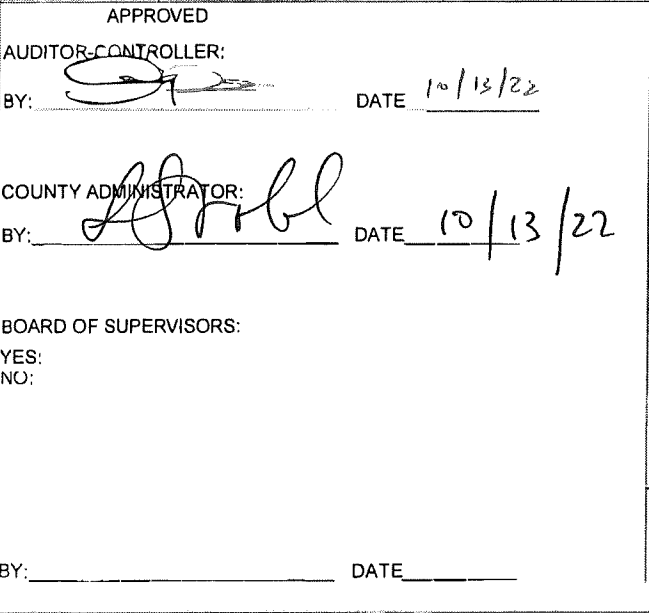 APPROVED
AUDITOR-CONTROLLER:
BY: DATE 10/13/22
COUNTY ADMINISTRATOR:
BY: DATE 10/13/22
BOARD OF SUPERVISORS:
YES:
NO:
BY: DATE